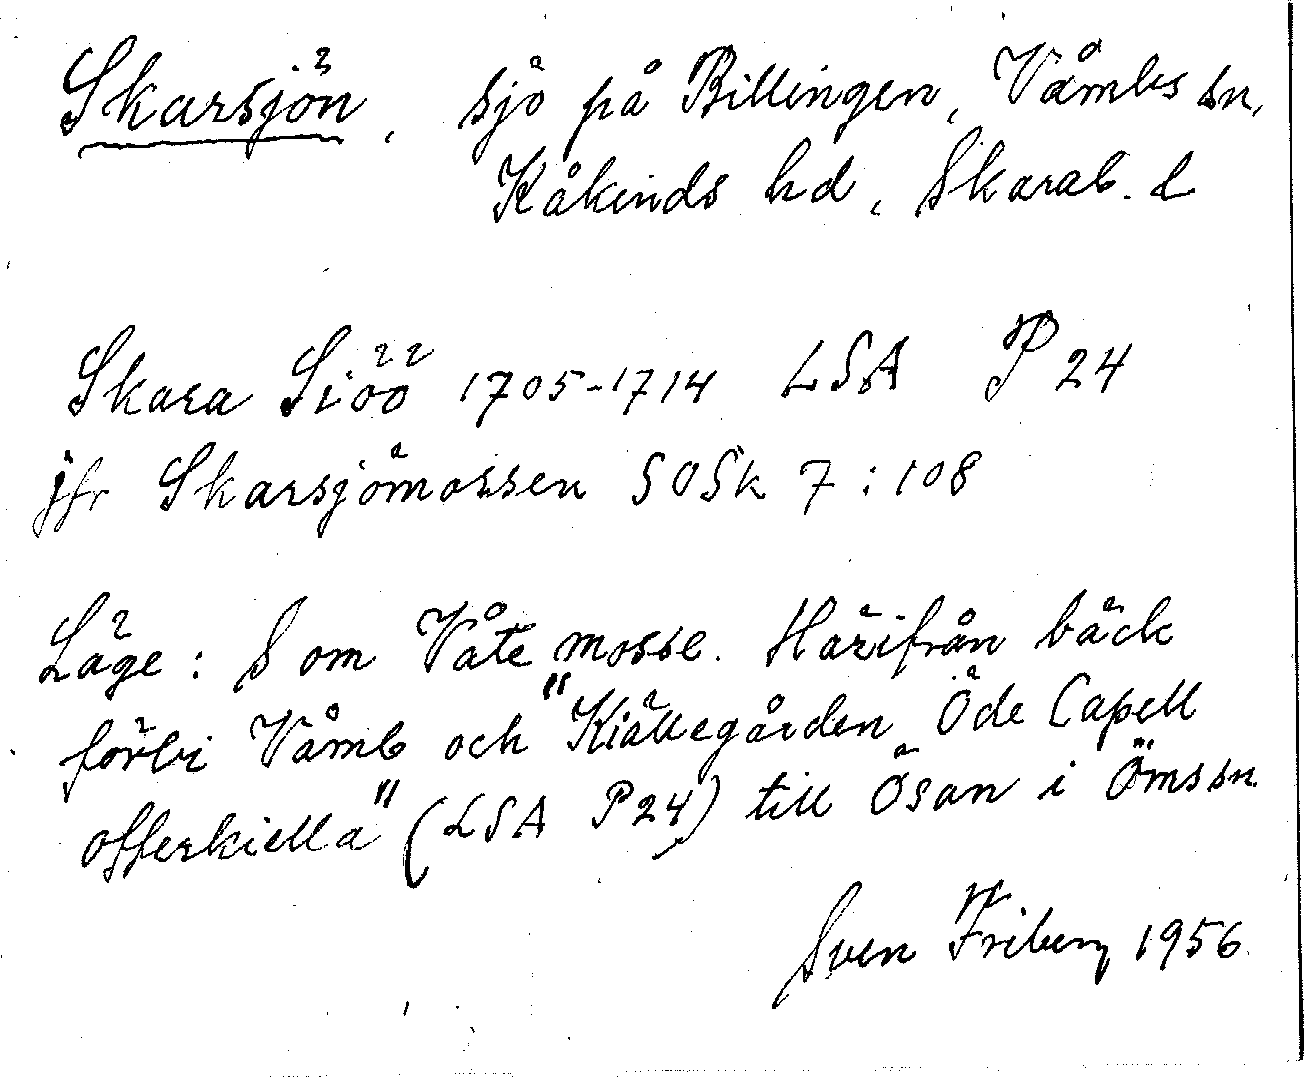 Skarsjön, sjö på Billingen, Våmbs sn,
Kåkinds hd, Skarab. l
Skara Siöö 1705-1714 LSA P 24
jfr Skarsjömossen SOSk 7:108
Läge: S om Våte mosse. Härifrån bäck
förbi Våmb och "Kiällegården Öde Capell
offerkiella" (LSA P24) till Ösan i Öms sn.
Sven Friberg 1956.